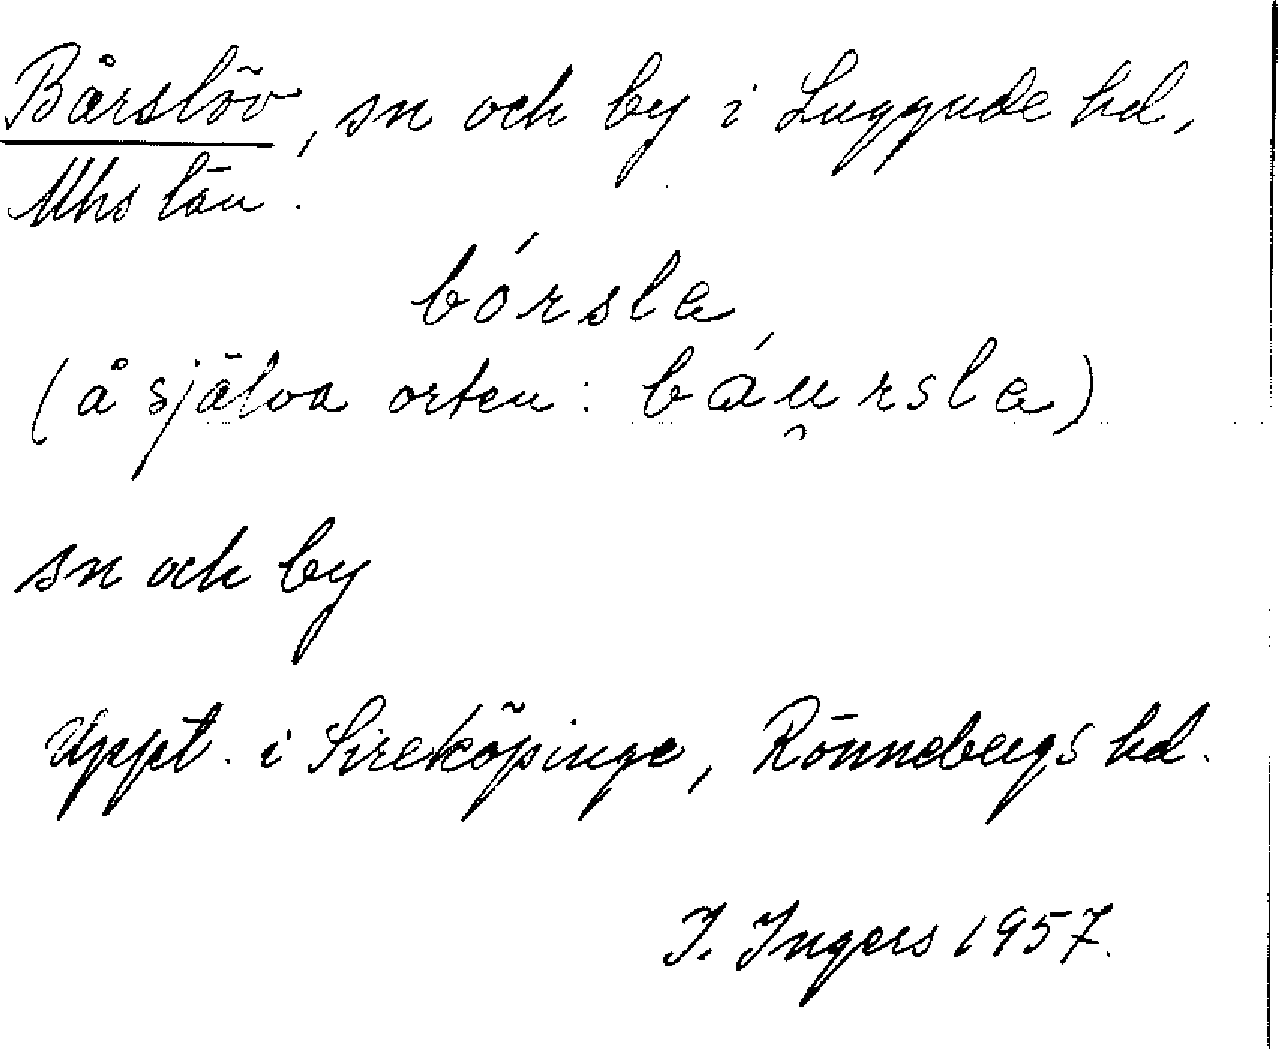 Bårslöv, sn och by i Luggude hd,
Mhs län.
bórsla
(å själva orten: báu̯rsla)
sn och by
Uppt. i Sireköpinge, Rönnebergs hd.
I. Ingers 1957.